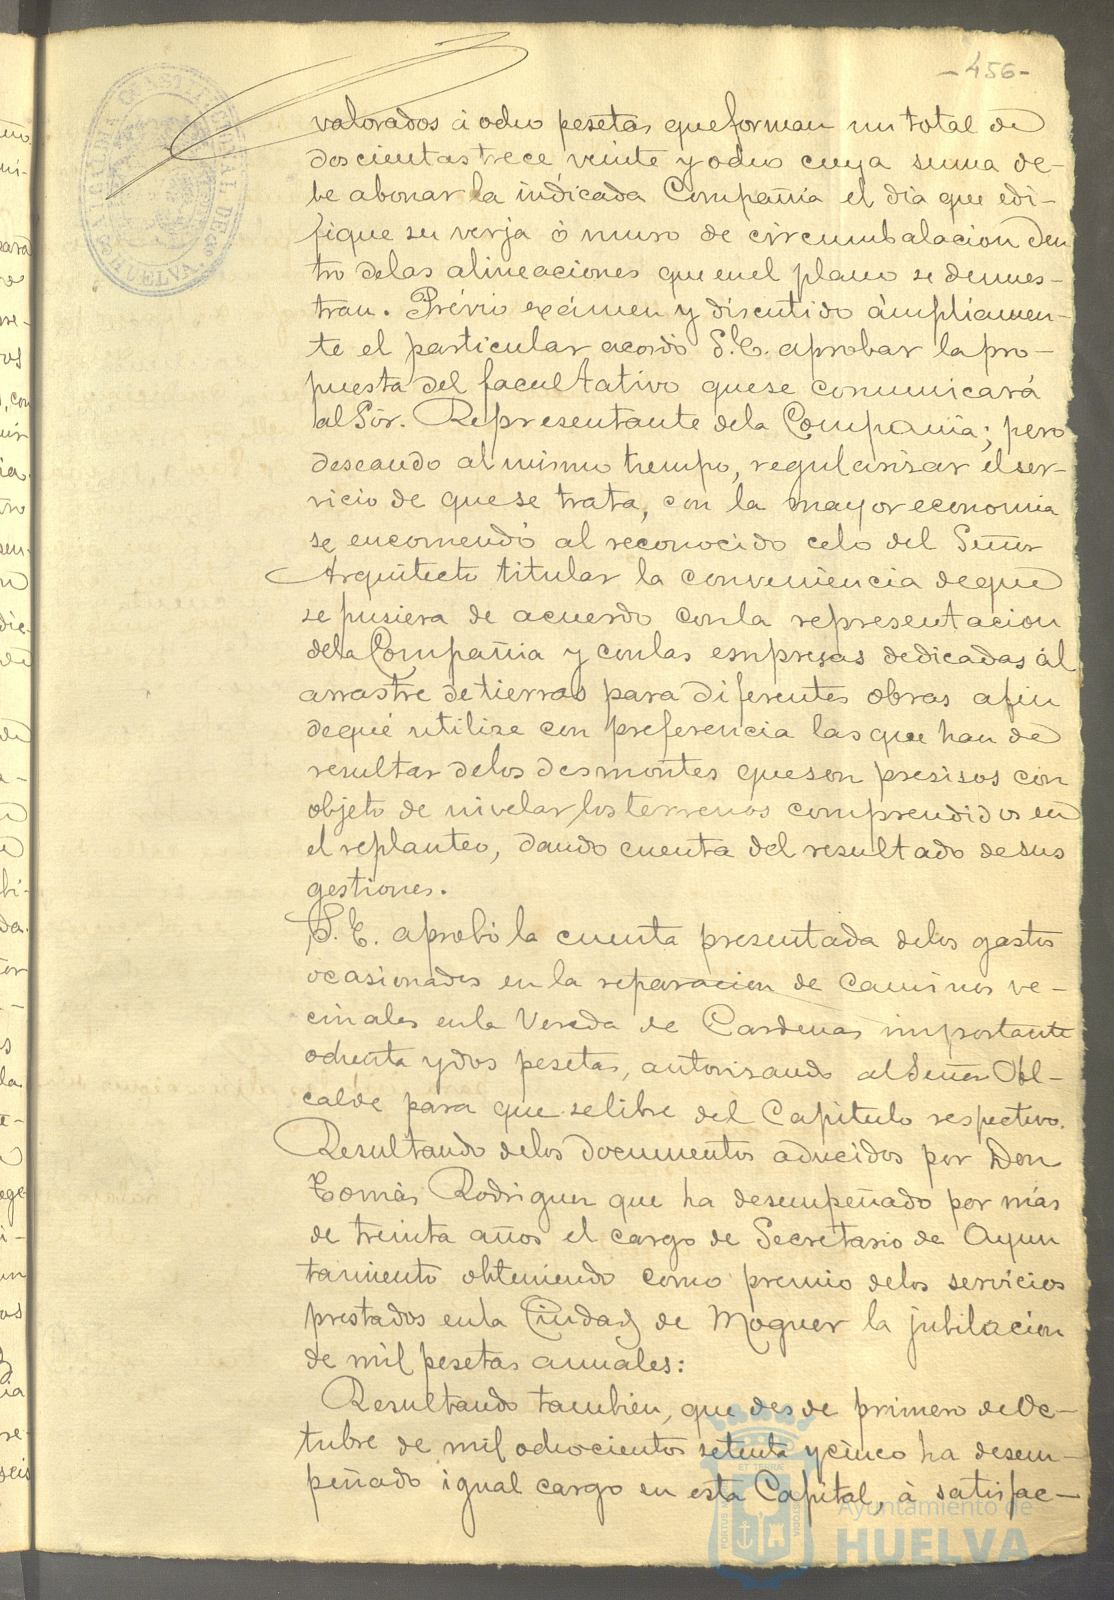 -456-
valorados á ocho pesetas que forman un total de
doscientas trece veinte y ocho cuya suma de-
be abonar la indicada Compañia el dia que edi-
fique su verja ó muro de circumbalacion den
tro de las alineaciones que en el plano se demues-
tran. Prévio exámen y discutido ámpliamen-
te el particular acordó S.E. aprobar la pro-
puesta del facultativo que se comunicará
al Sór. Representante de la Compañia; pero
deseando al mismo tiempo, regularisar el ser-
vicio de que se trata, con la mayor economia
se encomendó al reconocido celo del Señor
Arquitecto titular la conveniencia de que
se pusiera de acuerdo con la representacion
de la Compañia y con las empresas dedicadas al
arrastre de tierras para diferentes obras a fin
de qué utilize con preferencia las que han de
resultar de los desmontes que son presisos con
objeto de nivelar los terrenos comprendidos en
el replanteo, dando cuenta del resultado de sus
gestiones.
S.E. aprobó la cuenta presentada de los gastos
ocasionados en la reparacion de caminos ve-
cinales en la Vereda de Cardenas importante
ochenta y dos pesetas, autorisando al Señor Al-
calde para que se libre del Capitulo respectivo.
Resultando de los documentos aducidos por Don
Tomás Rodriguez que ha desempeñado por más
de treinta años el cargo de Secretario de Ayun
tamiento obteniendo como premio de los servicios
prestados en la Ciudad de Moguer la jubilacion
de mil pesetas anuales:
Resultando tambien, que desde primero de Oc-
tubre de mil ochocientos setenta y cinco ha desem-
peñado igual cargo en esta Capital, á satisfac-
Ayuntamiento de
HUELVA